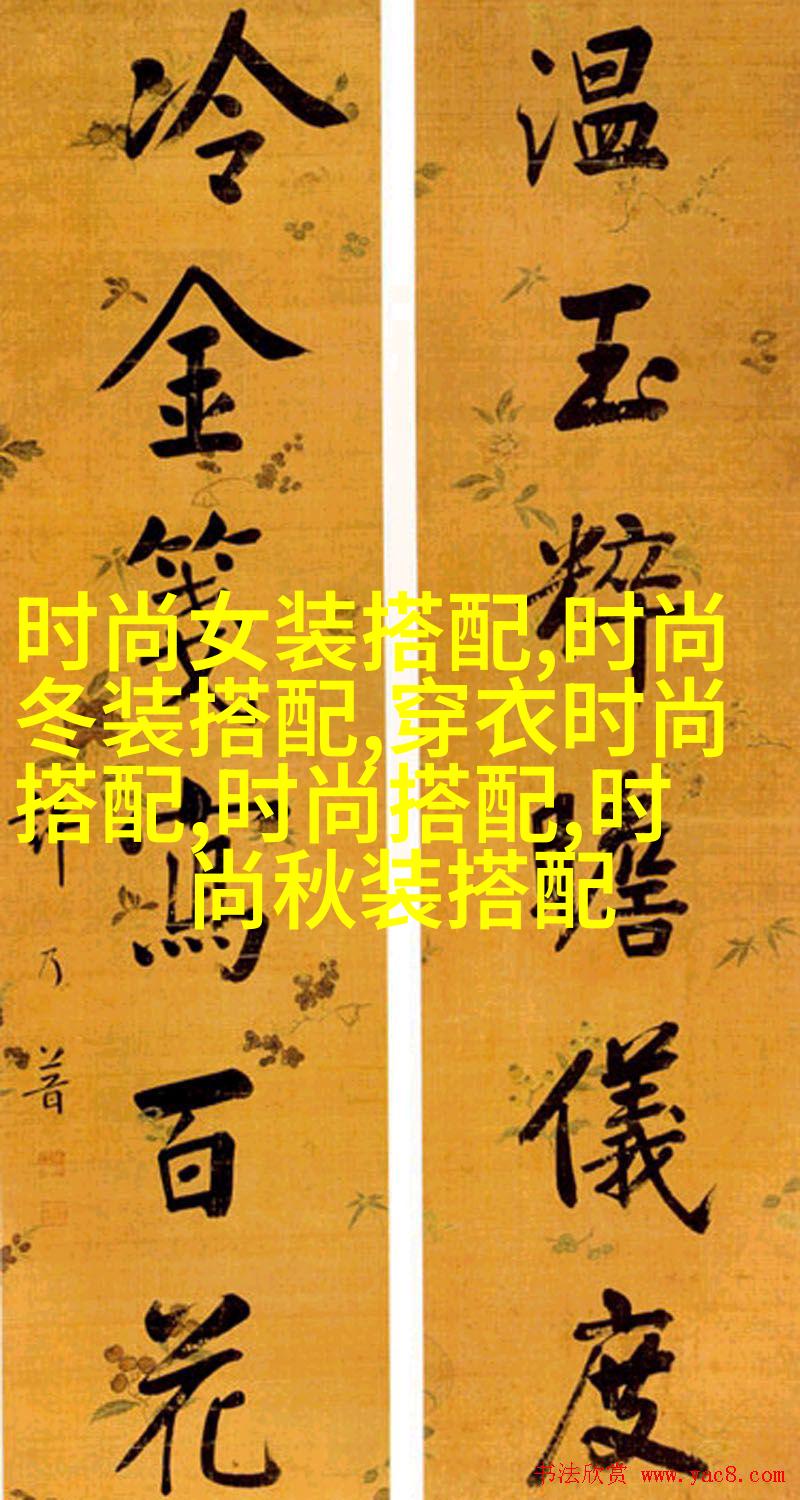 温玉粹瞻儀度
冷金箋寫百花
乃普
时尚女装搭配,时尚
冬装搭配,穿衣时尚
搭配,时尚搭配,时
尚秋装搭配
书法欣赏 www.yac8.com